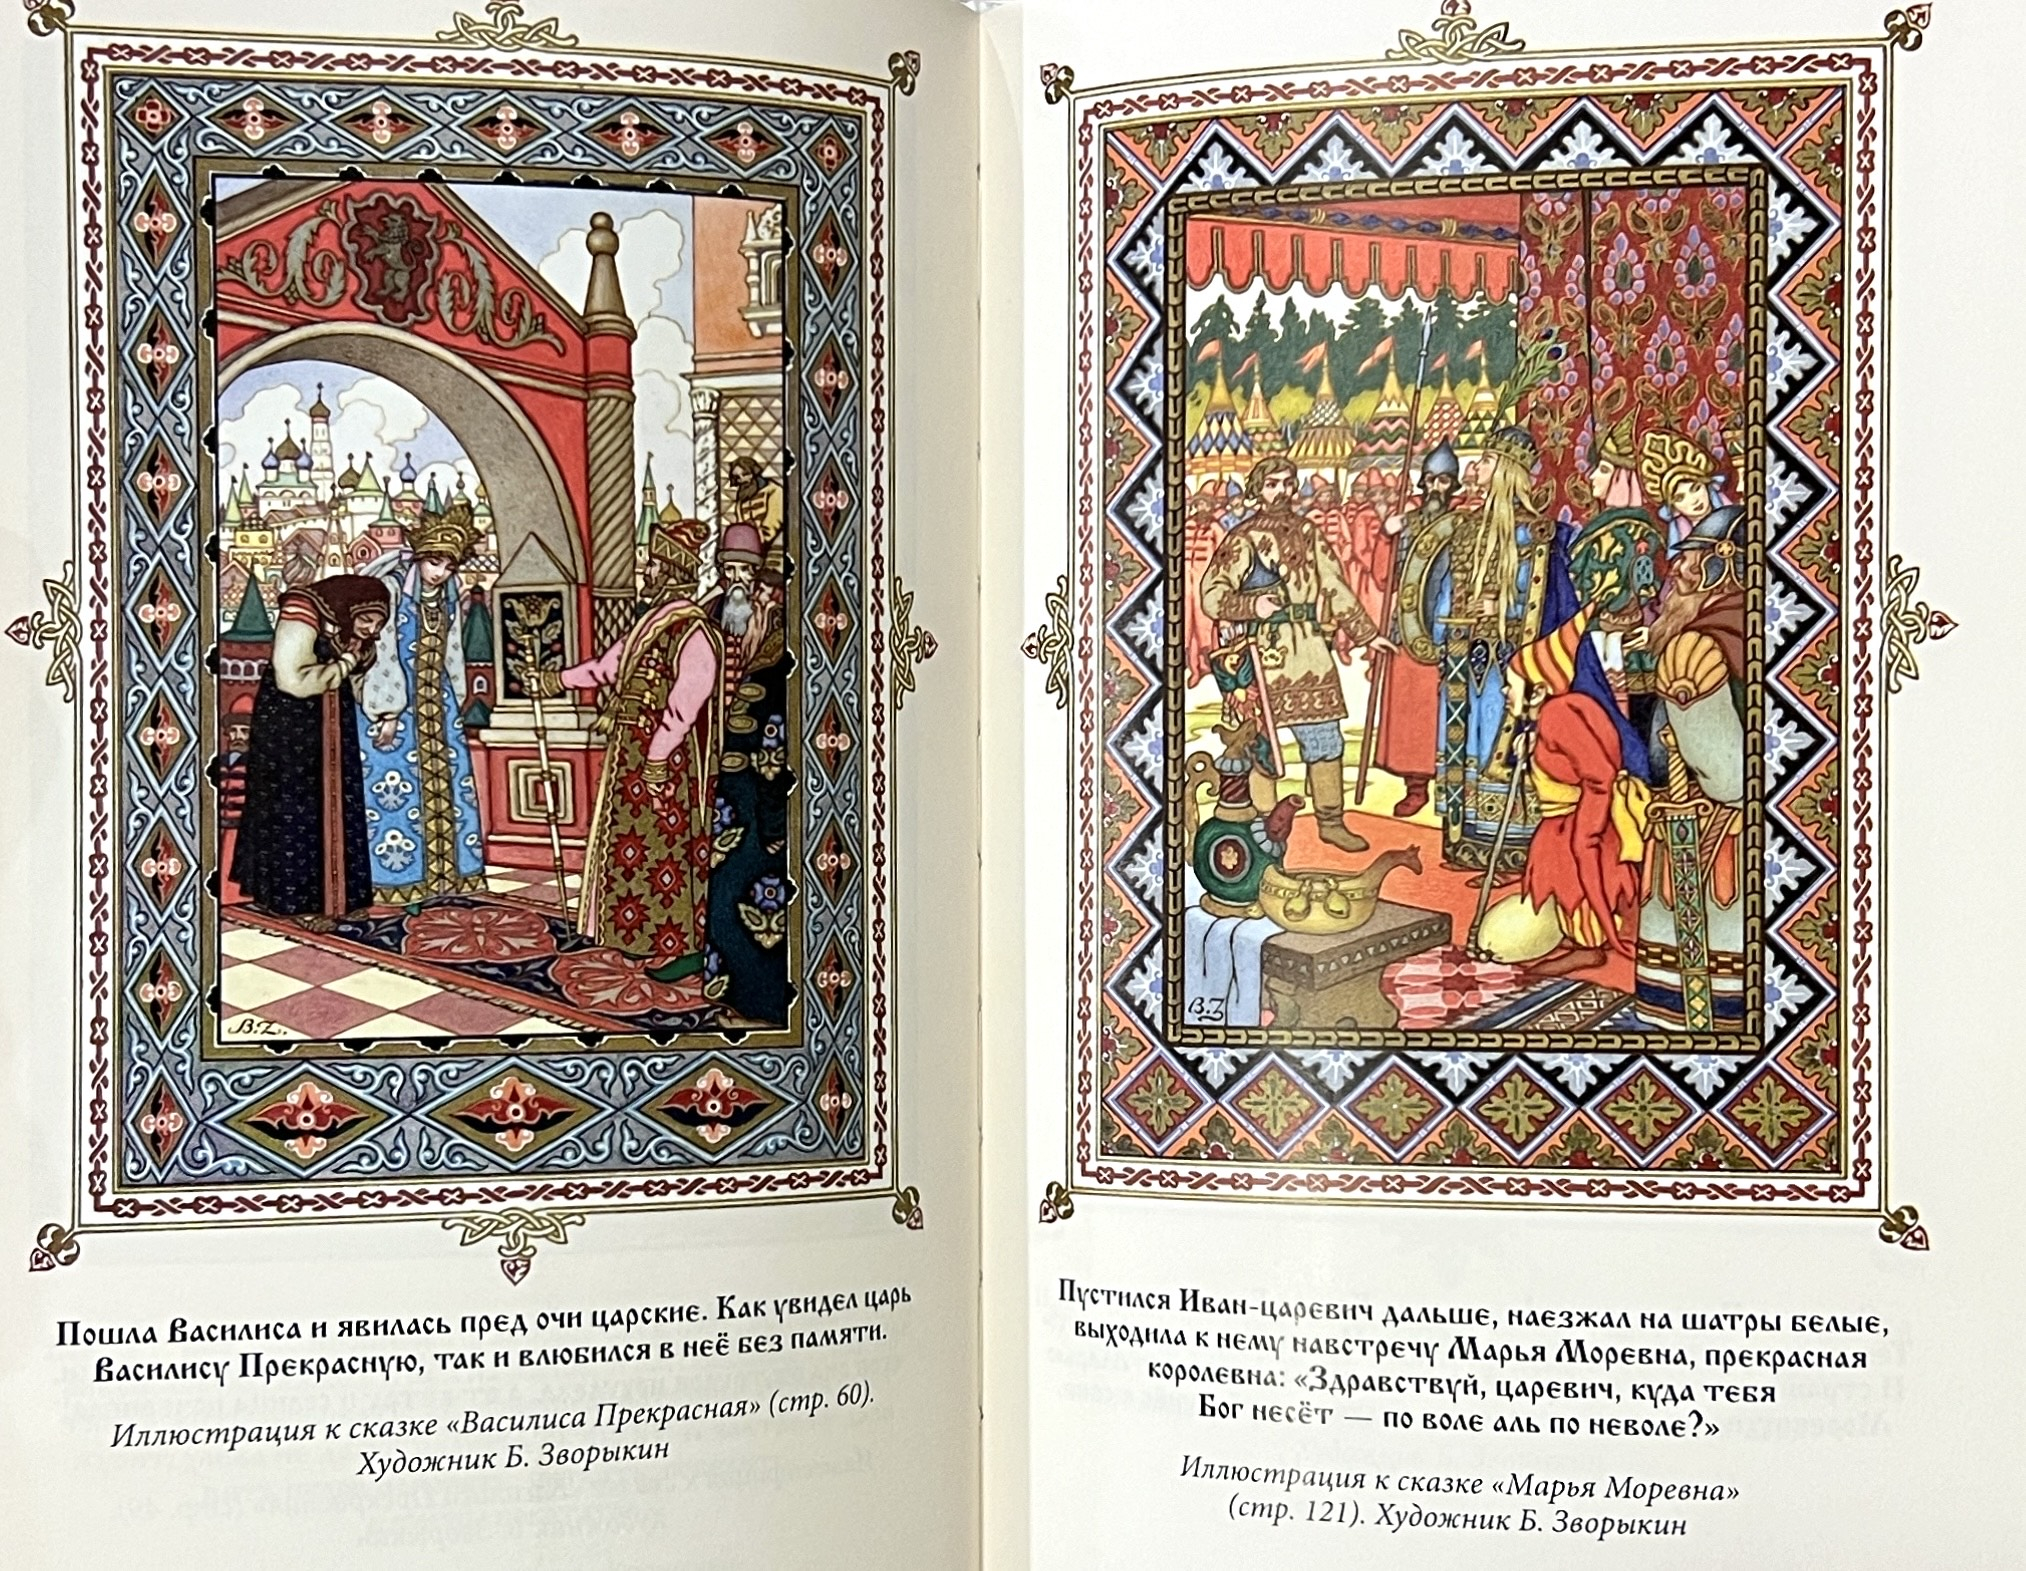 B.Z.
Пошла Василиса и явилась пред очи царские. Как увидел царь
Василису Прекрасную, так и влюбился в неё без памяти.
Иллюстрация к сказке «Василиса Прекрасная» (стр. 60).
Художник Б. Зворыкин
B.Z
Пустился Иван-царевич дальше, наезжал на шатры белые,
выходила к нему навстречу Марья Моревна, прекрасная
королевна: «Здравствуй, царевич, куда тебя
Бог несёт — по воле аль по неволе?»
Иллюстрация к сказке «Марья Моревна»
(стр. 121). Художник Б. Зворыкин